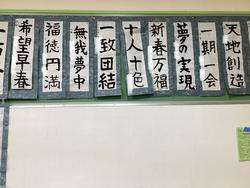 天地創造
一期一会
夢の実現
新春万福
十人十色
一致団結
無我夢中
福徳円満
希望早春